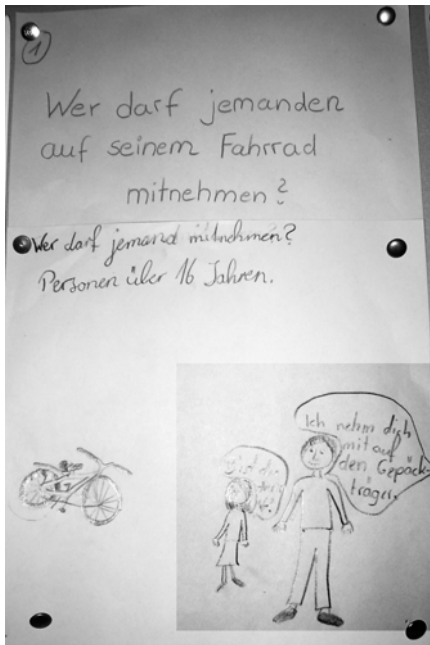 1
Wer darf jemanden
auf seinem Fahrrad
mitnehmen?
Wer darf jemand mitnehmen?
Personen über 16 Jahren.
Ich nehm dich
mit auf
den Gepäck-
träger.